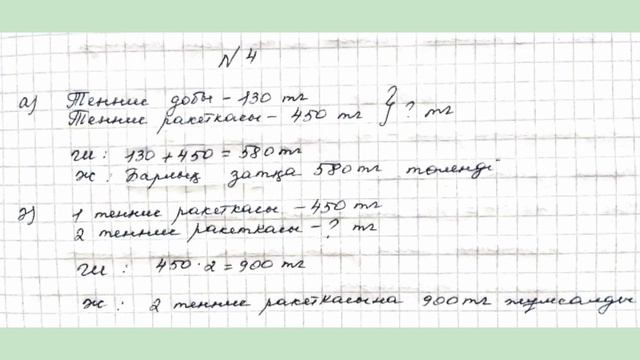 № 4
а) Теннис добы – 130 тг
Теннис ракеткасы – 450 тг } ? тг
Ш : 130 + 450 = 580 тг
Ж : Барлық затқа 580 тг төленді
ә) 1 теннис ракеткасы – 450 тг
2 теннис ракеткасы – ? тг
Ш : 450 · 2 = 900 тг
Ж : 2 теннис ракеткасына 900 тг жұмсалды